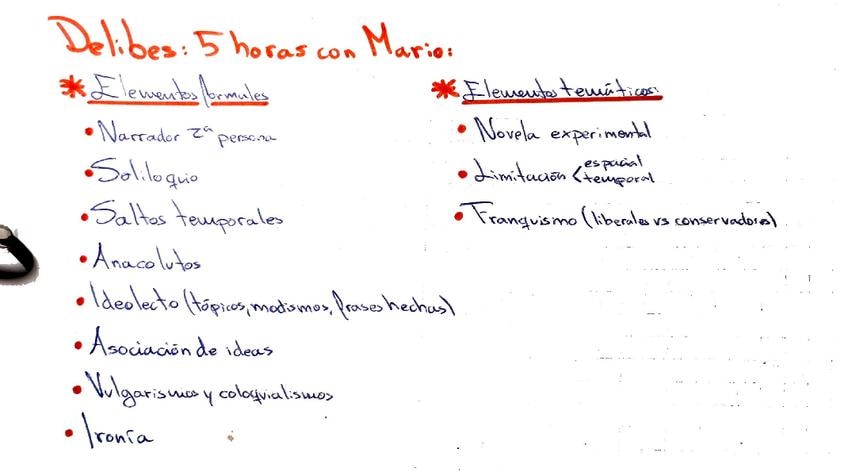 Delibes: 5 horas con Mario:
* Elementos formales
• Narrador 2ª persona
• Soliloquio
• Saltos temporales
• Anacolutos
• Ideolecto (tópicos, modismos, frases hechas)
• Asociación de ideas
• Vulgarismos y coloquialismos
• Ironía
* Elementos temáticos:
• Novela experimental
• Limitación < espacial
temporal
• Franquismo (liberales vs conservadores)